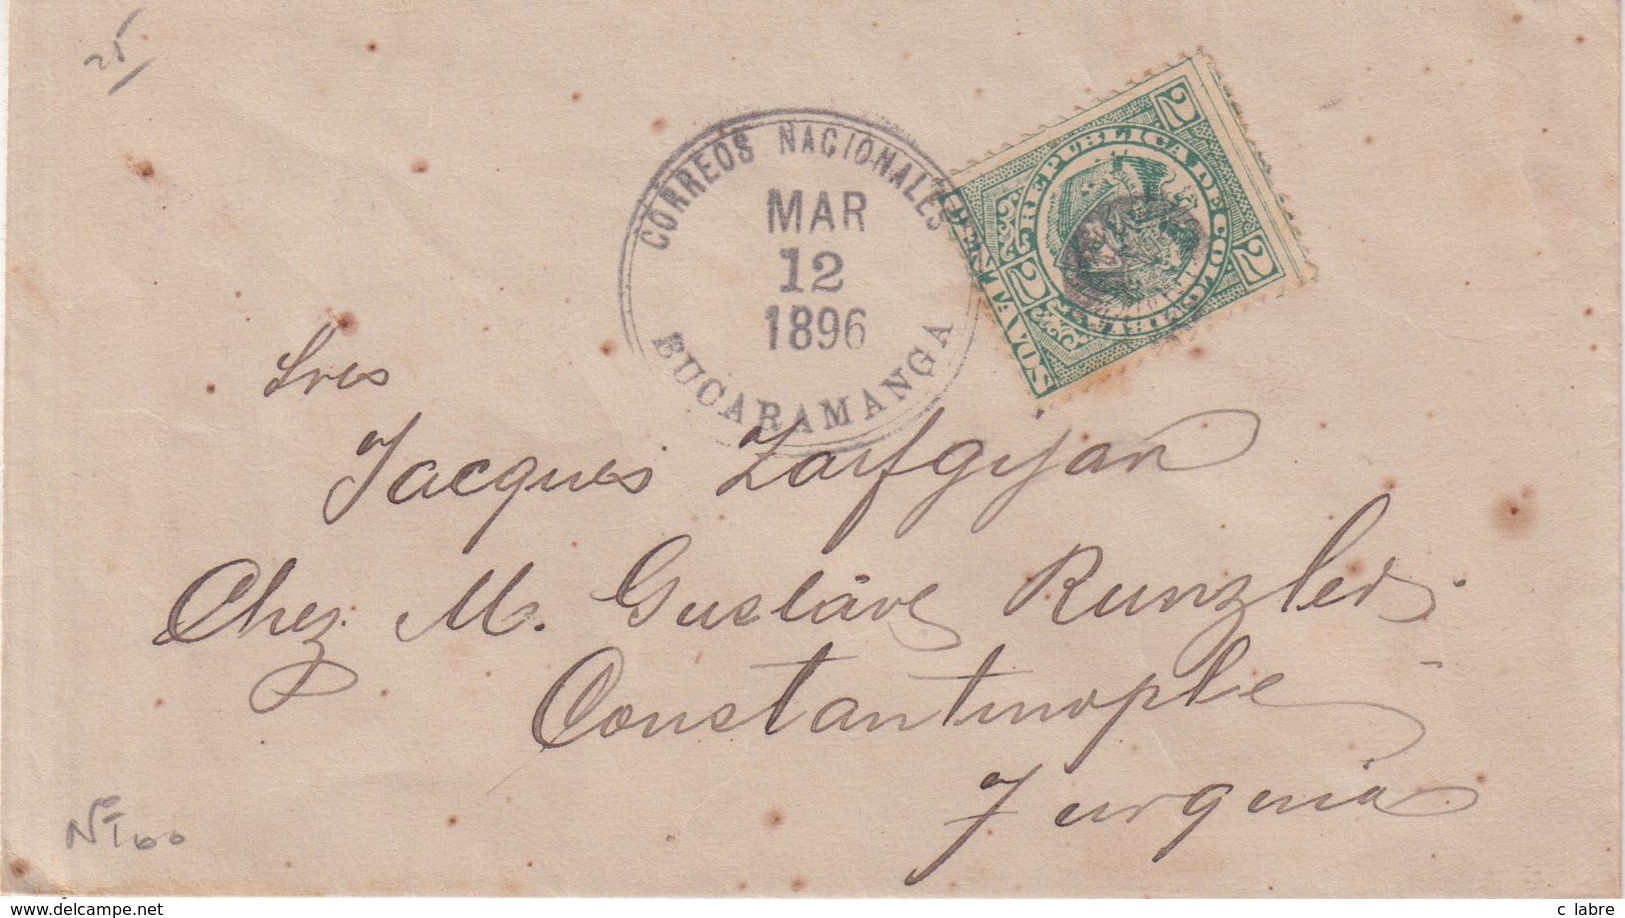 25
CORREOS NACIONALES
MAR
12
1896
BUCARAMANGA
REPUBLICA DE COLOMBIA
2
2
2
2 CENTAVOS
Sres
Jacques Zarfgijan
Chez M. Gustave Runzler
Constantinople
Turquia
www.delcampe.net
c labre